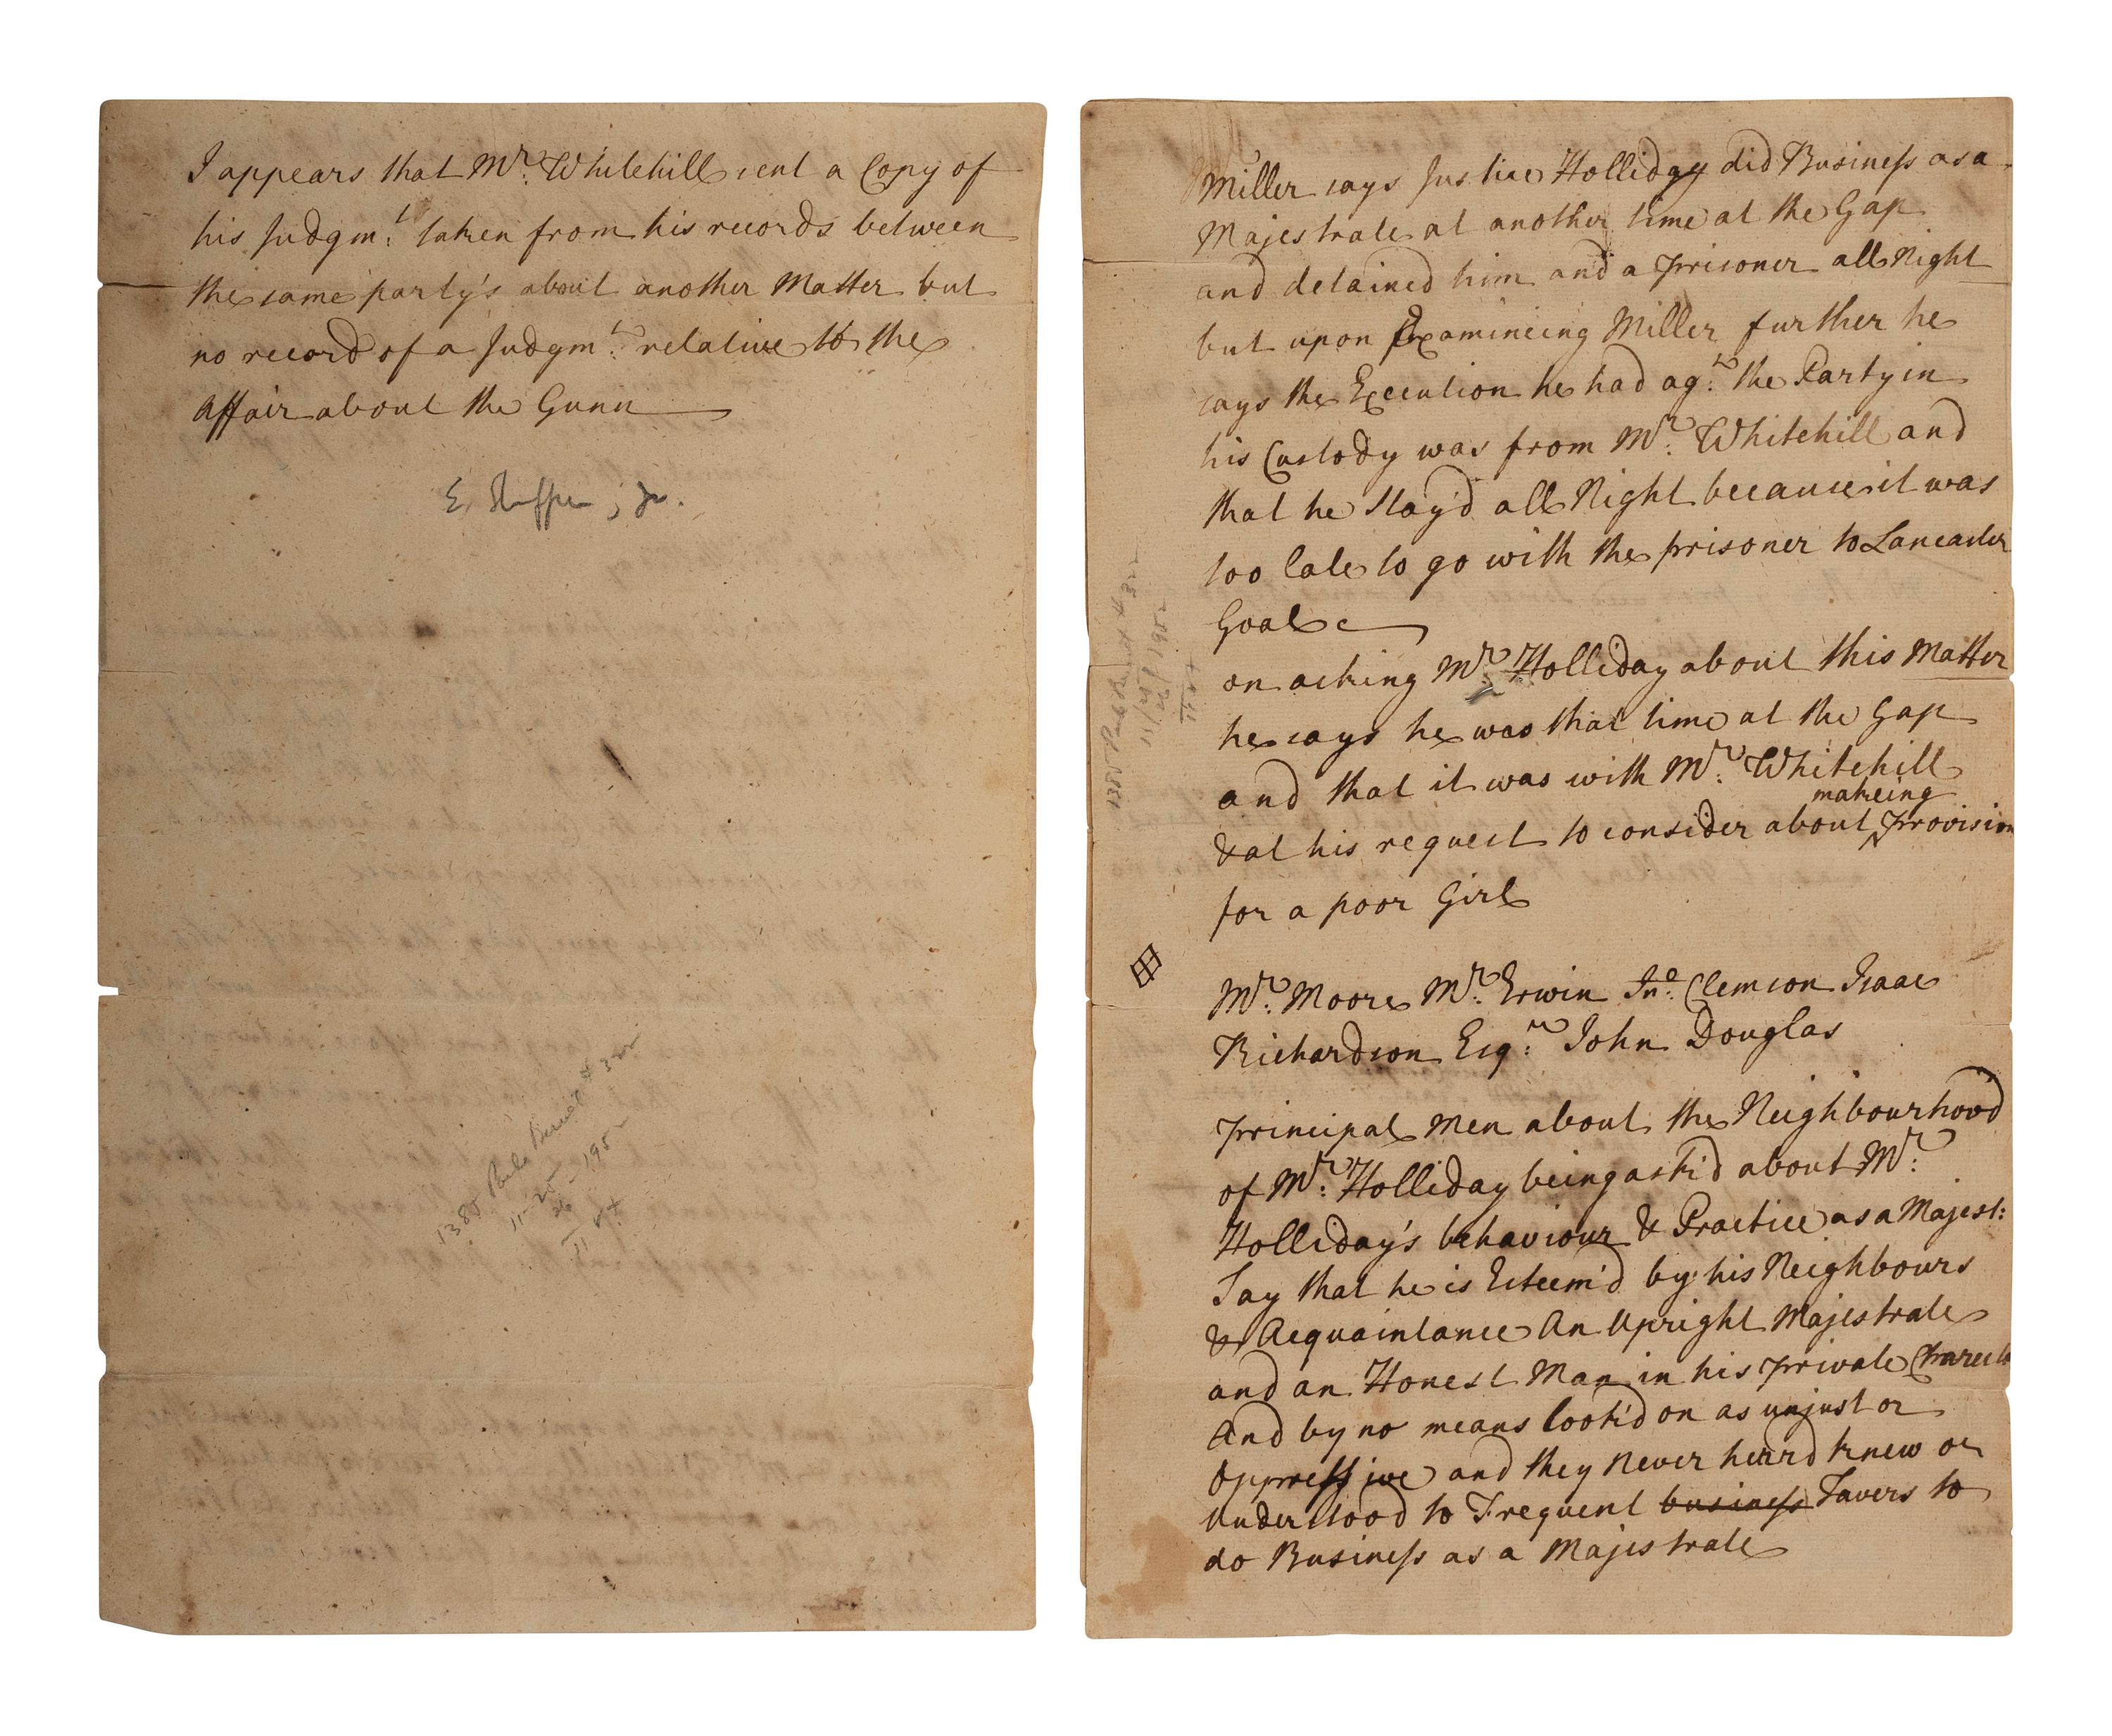 I appears that Mr. Whitehill sent a Copy of
his Judgmt. taken from his records between
the same party's about another Matter but
no record of a Judgmt. relative to the
Affair about the Gunn
Miller says Justice Holliday did Business as a
Majestrate at another time at the Gap
and detained him and a prisoner all Night
but upon Examineing Miller further he
says the Execution he had agt. the Party in
his Custody was from Mr. Whitehill and
that he Stay'd all Night because it was
too late to go with the prisoner to Lancaster
Goal
on asking Mr. Holliday about this Matter
he says he was that time at the Gap
and that it was with Mr. Whitehill
makeing
& at his request to consider about provision
for a poor Girl
Mr. Moore Mr. Erwin Jno. Clemson Isaac
Richardson Esqr. John Douglas
principal Men about the Neighbourhood
of Mr. Holliday being ask'd about Mr.
Holliday's behaviour & Practice as a Majest:
Say that he is Esteem'd by his Neighbours
& Acquaintance An Upright Majestrate
and an Honest Man in his private Charecte
And by no means look'd on as unjust or
Oppressive and they Never heard knew or
Understood to Frequent business Tavers to
do Business as a Majestrate